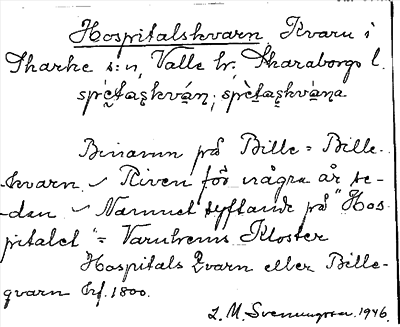 Hospitalskvarn Kvarn i
Skarke s:n, Valle hr, Skaraborgs l.
Binamn på Bille = Bille-
kvarn. Riven för några år se-
-dan. Namnet syftande på "Hos-
pitalet" = Varnhems Kloster
Hospitals Qvarn eller Bille-
qvarn Hf. 1800.
L. M. Svenungsson. 1946.